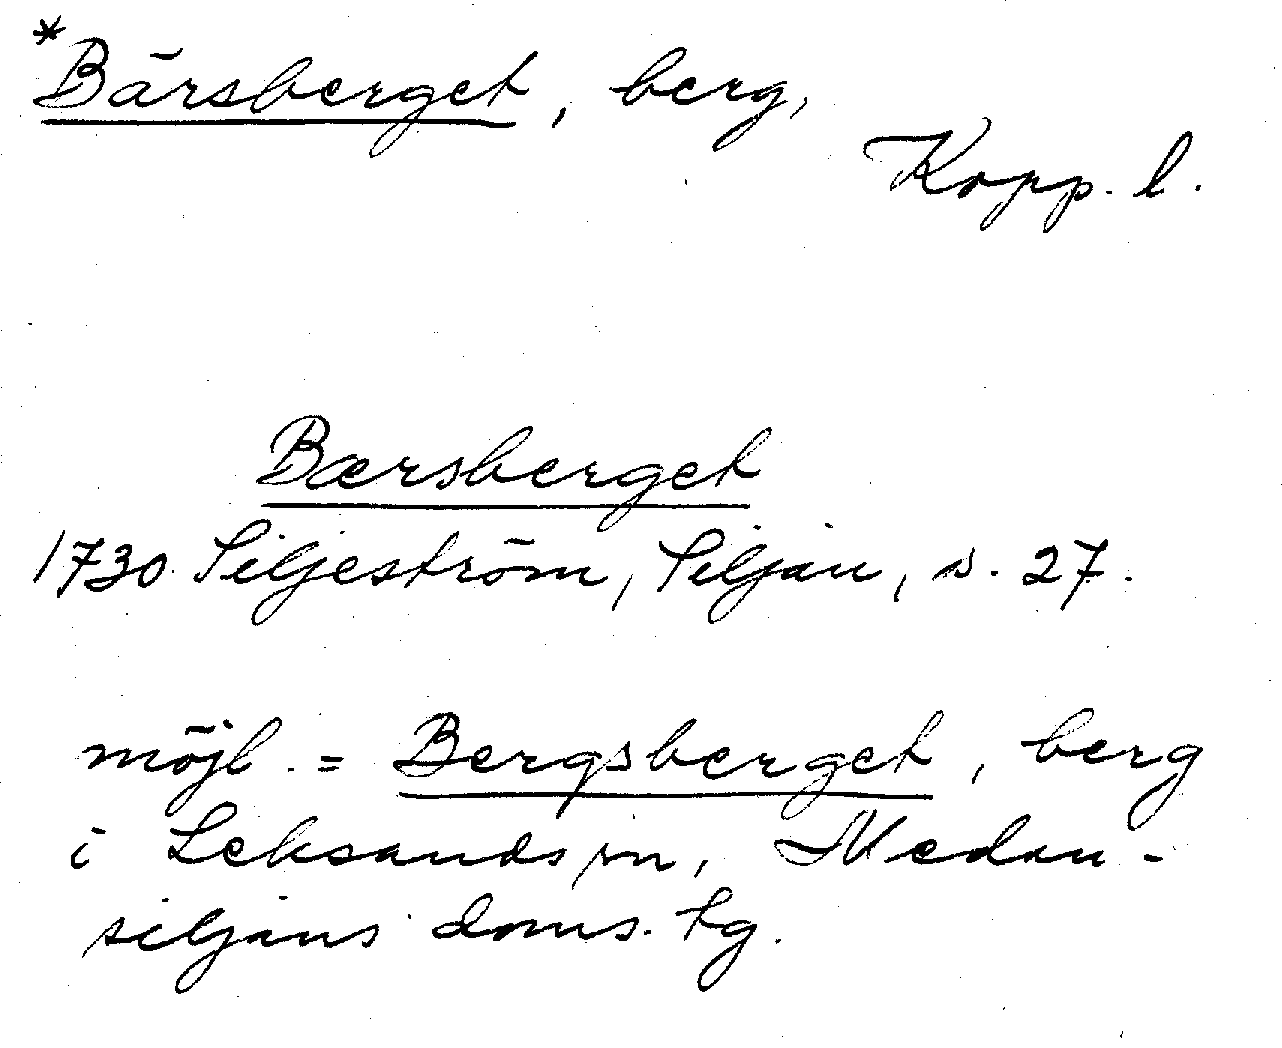 *Bärsberget, berg,
Kopp. l.
Bærsberget
1730. Siljeström, Siljan, s. 27.
möjl. = Bergsberget, berg
i Leksands sn, Nedan-
siljans doms. tg.